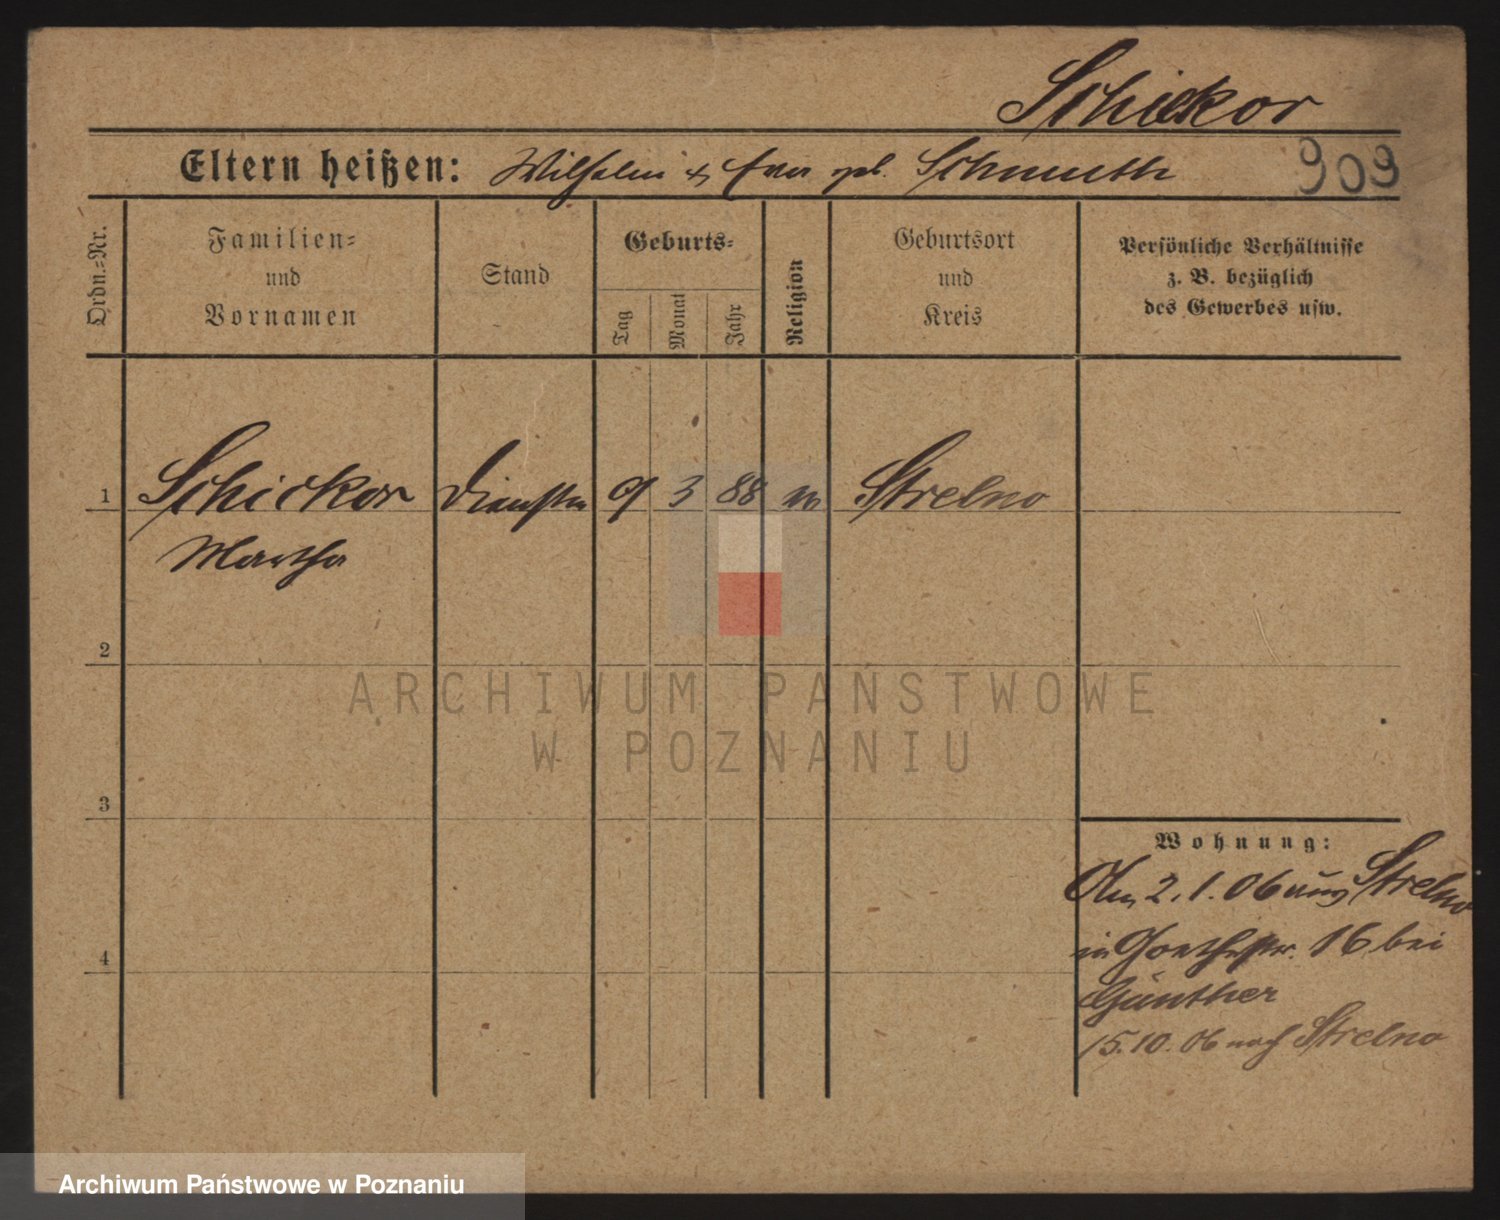 Schickor
Eltern heißen: Wilhelm & Eva geb. Schmuth 909
Ordn.-Nr.
Familien-
und
Vornamen
Stand
Geburts-
Tag
Monat
Jahr
Religion
Geburtsort
und
Kreis
Persönliche Verhältnisse
z. B. bezüglich
des Gewerbes usw.
1 Schickor 9 3 88 Strelno
Martha
2
3
4
Wohnung:
Am 2. 1. 06 aus Strelno
in Goethestr. 16 bei
Günther
15. 10. 06 nach Strelno
ARCHIWUM PAŃSTWOWE
W POZNANIU
Archiwum Państwowe w Poznaniu